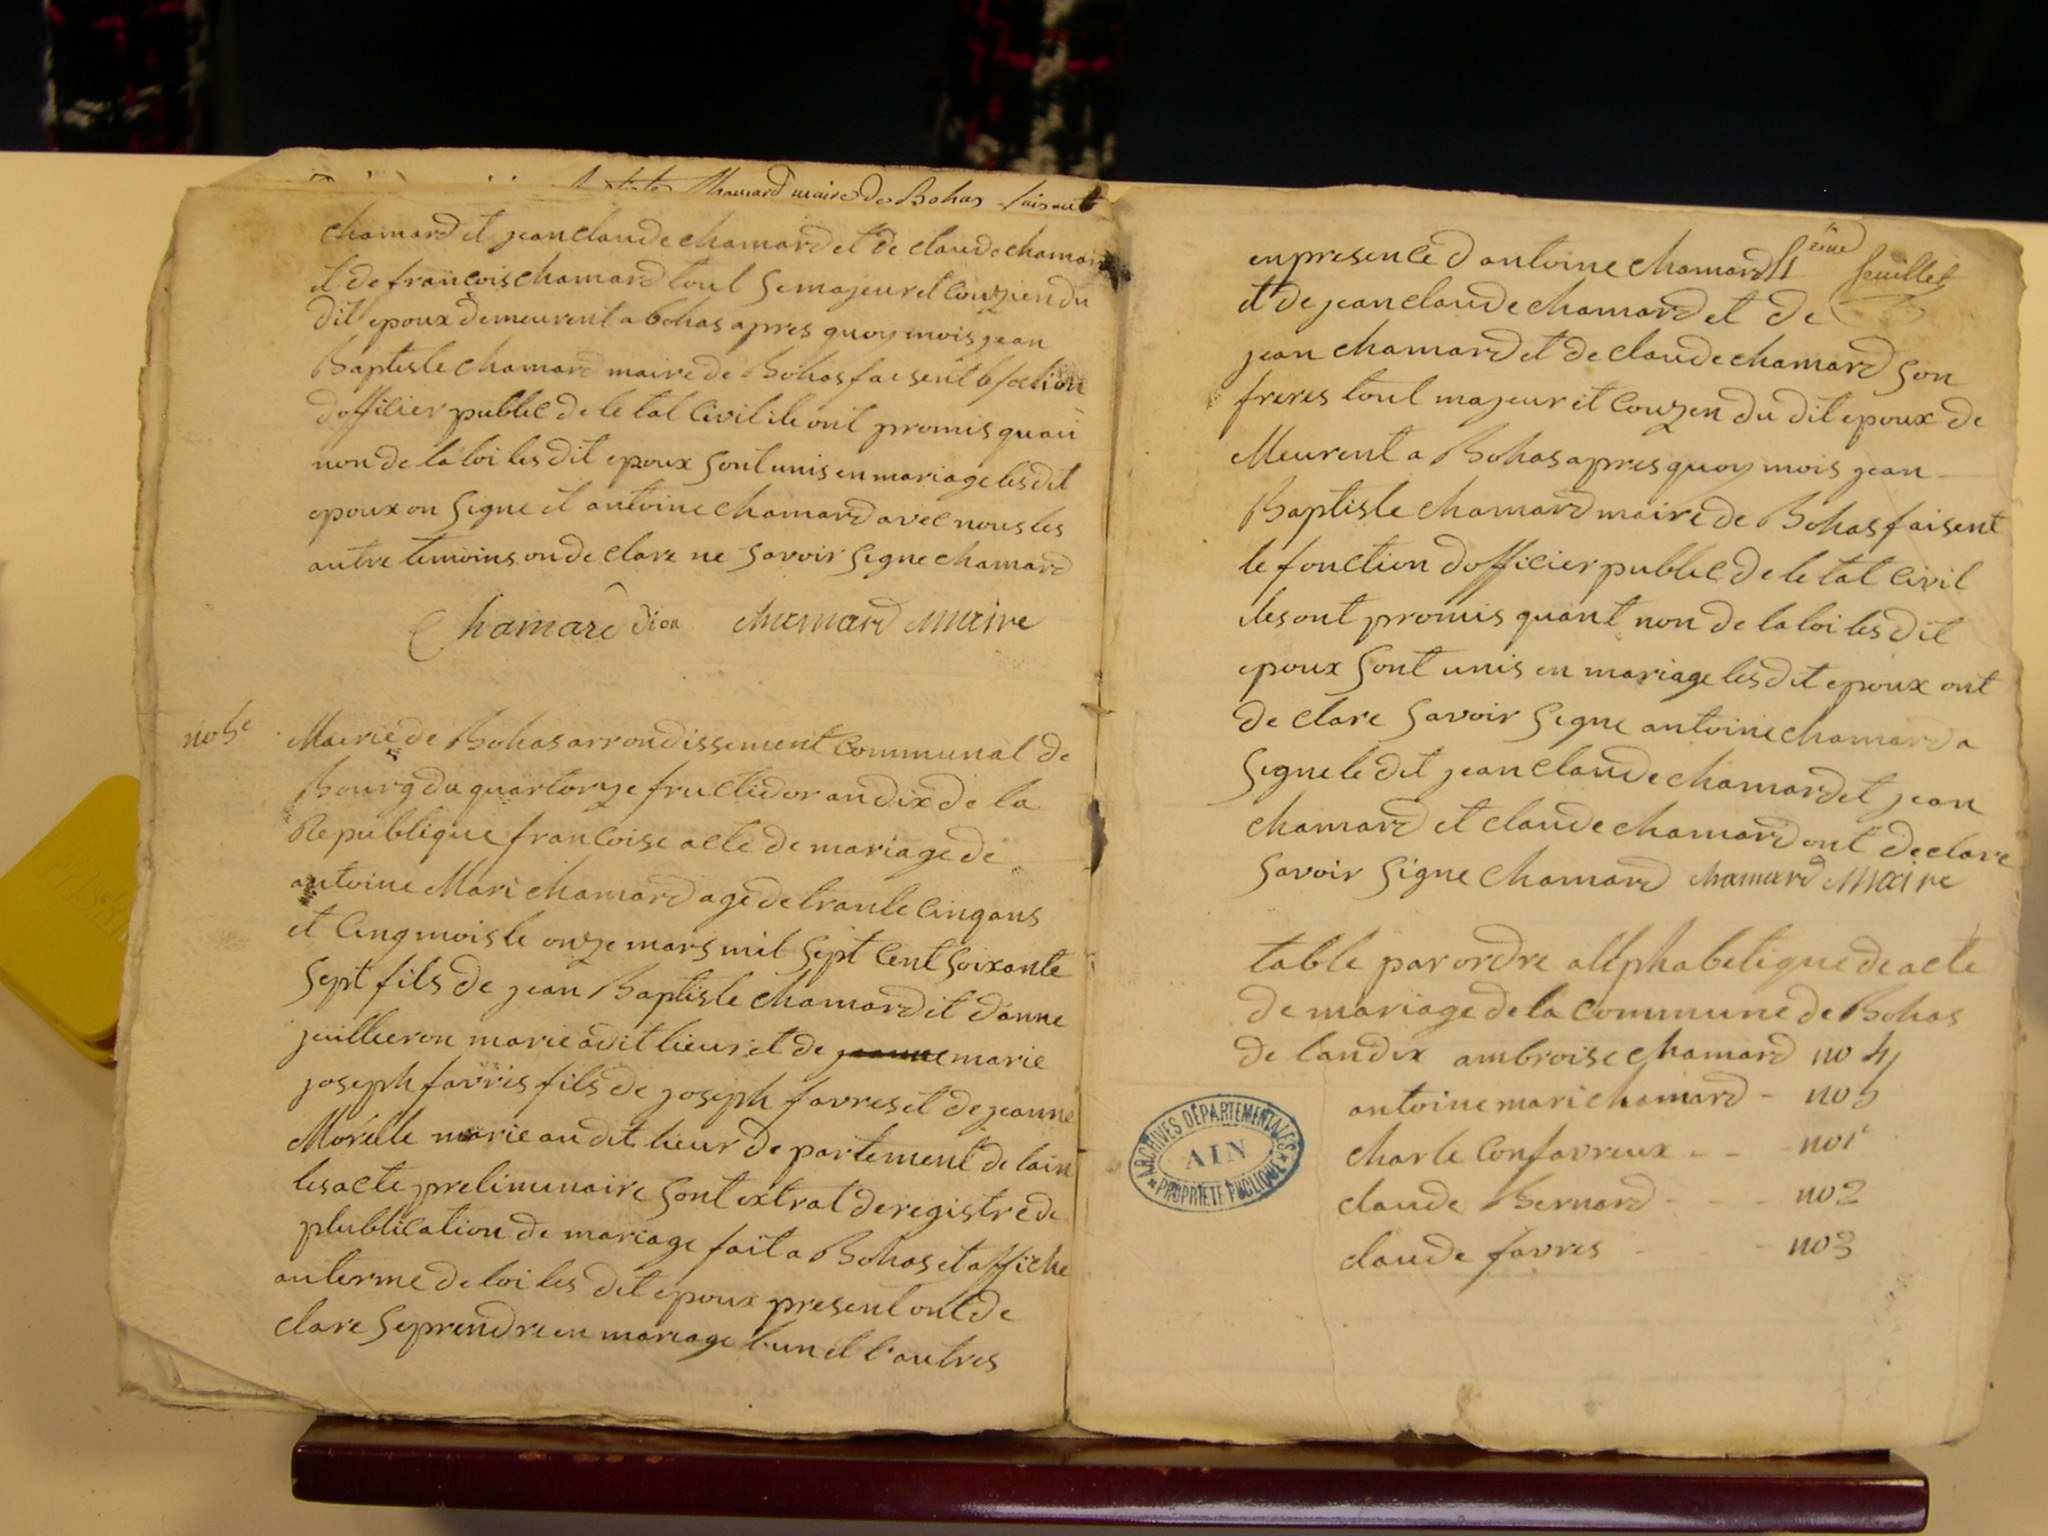 Chamard maire de Bohas faisent
chamard et jean claude chamard et de claude chamard
et de francois chamard tout se majeur et couzien du
dit epoux demeurent a bohas apres quoy mois jean
Baptiste chamard maire de Bohas faesent
dofficier publec de le tat Civil ile ont promis quau
non de la loi les dit epoux sont unis en mariage les dit
epoux on signe et antoine chamard avec nous les
autre temoins on de clare ne savoir signe chamard
Chamard chamard Maire
no 5e
Mairie de Bohas arrondissement Communal de
Bourg du quartorze fructidor an dix de la
Republique francoise acte de mariage de
antoine Mari chamard age de trante cinq ans
et cinq mois le onze mars mil sept cent soixante
sept fils de jean Baptiste chamard et d'anne
juillieron marie a dit lieur et de marie
joseph favres fils de joseph favres et de jeanne
Morelle marie au dit lieur de partement de lain
les acte preliminaire sont extrat de registre de
plublication de mariage fait a Bohas et affiche
au terme de loi les dit epoux present ont de
clare se prendre en mariage l'un et l'autres
en presence d antoine chamard 4 eme feuillet
et de jean claude chamard et de
jean chamard et de claude chamard son
freres tout majeur et couzen du dit epoux de
Meurent a Bohas apres quoy mois jean
Baptiste chamard maire de Bohas faisent
le fonction dofficier publec de le tat civil
iles ont promis quant non de la loi les dit
epoux sont unis en mariage les dit epoux ont
de clare savoir signe antoine chamard a
signe le dit jean claude chamard et jean
chamard et claude chamard ont declare
savoir signe chamard chamard Maire
table par ordre allphabetique de acte
de mariage de la commune de Bohas
de landix ambroise chamard no 4
antoine mari chamard - no 5
charle Confavreux - - no 1
claude Bernard - - - no 2
claude favres - - - no 3
ARCHIVES DÉPARTEMENTALES
AIN
PROPRIÉTÉ PUBLIQUE